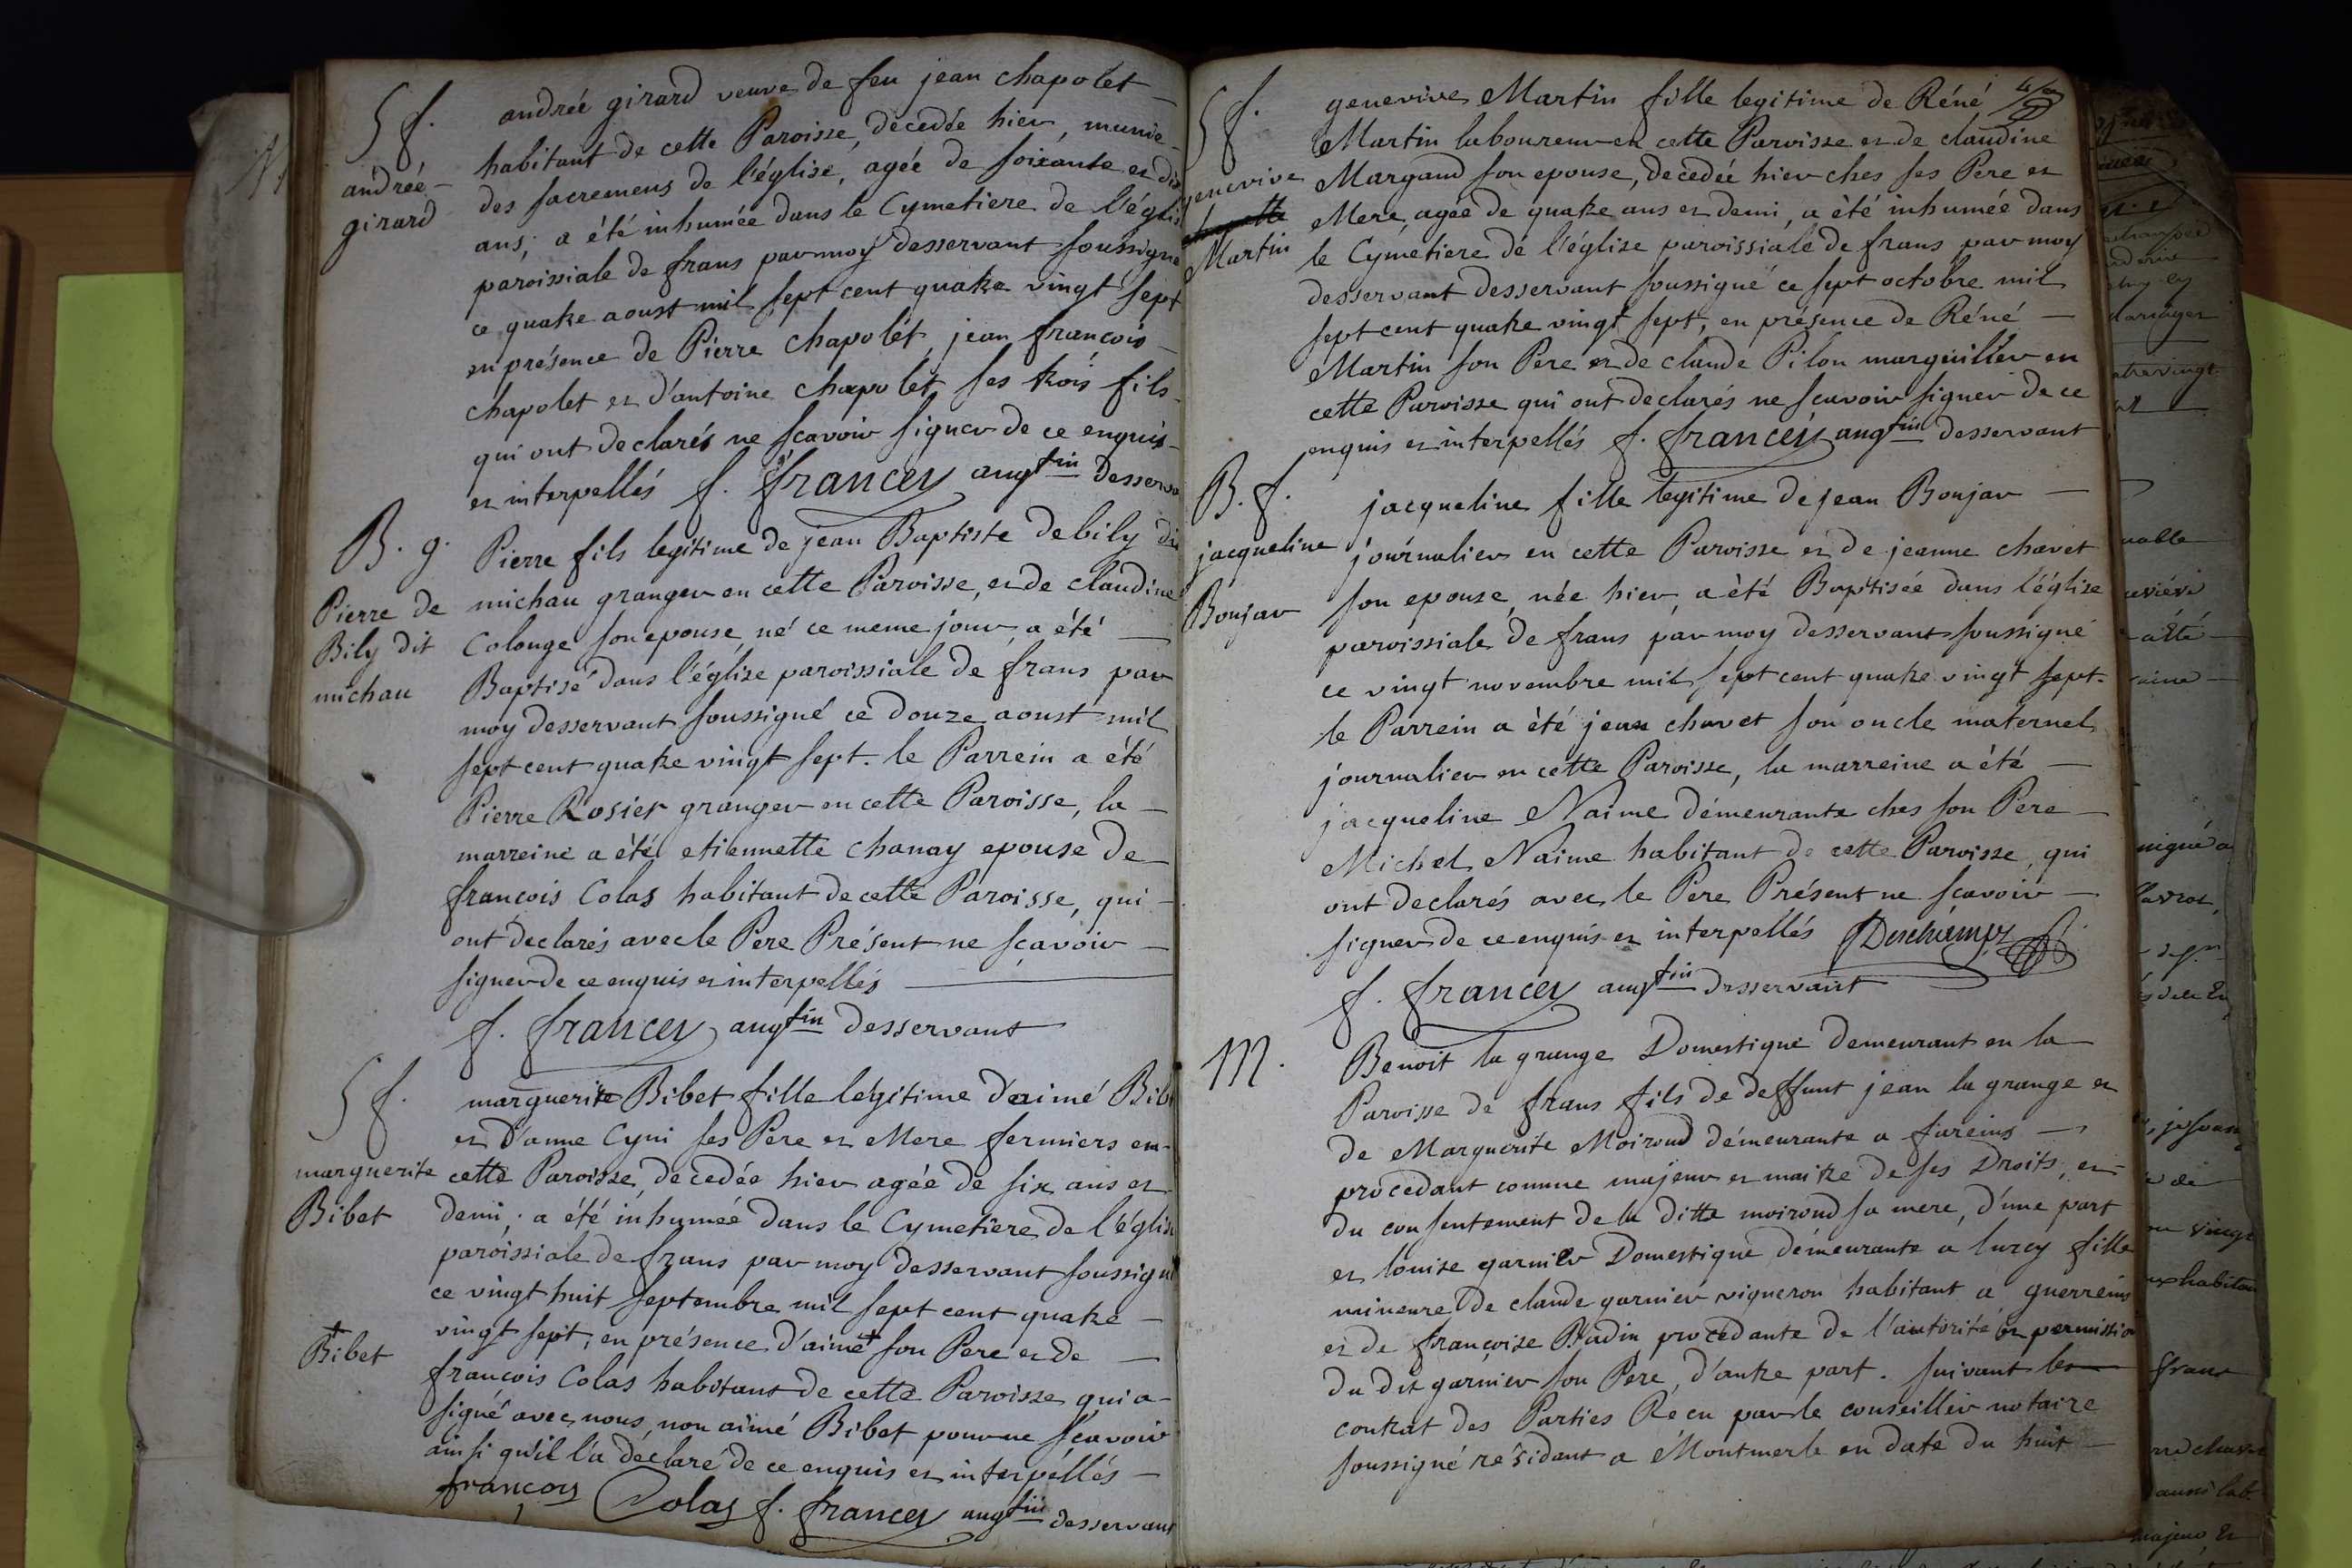 S f.
andrée
girard
andrée girard veuve de feu jean chapolet
habitant de cette Paroisse, décedée hier, munie
des sacremens de l'église, agée de soixante et dix
ans, a été inhumée dans le Cymetiere de l'église
paroissiale de frans par moy desservant soussigné
ce quatre aoust mil sept cent quatre vingt sept
en présence de Pierre chapolet, jean françois
chapolet et d'antoine chapolet ses trois fils
qui ont declarés ne scavoir signer de ce enquis
et interpellés f. francey augtin desserva
B. g.
Pierre de
Bily dit
michau
Pierre fils legitime de jean Baptiste debily dit
michau granger en cette Paroisse, et de claudine
Colonge son epouse, né ce meme jour, a été
Baptisé dans l'église paroissiale de frans par
moy desservant soussigné ce douze aoust mil
sept cent quatre vingt sept. le Parrein a été
Pierre Rosier granger en cette Paroisse, la
marreine a été etiennette chanay epouse de
françois Colas habitant de cette Paroisse, qui
ont declarés avec le Pere Présent ne sçavoir
signer de ce enquis et interpellés
f. francey augtin desservant
S f.
marguerite
Bibet
marguerite Bibet fille légitime d'aimé Bibet
et d'anne Cyni ses Pere et Mere fermiers en
cette Paroisse, decedée hier agée de six ans et
demi, a été inhumée dans le Cymetiere de l'église
paroissiale de frans par moy desservant soussigné
ce vingt huit septembre mil sept cent quatre
vingt sept, en présence d'aimé + son Pere et de
+ Bibet
françois Colas habitant de cette Paroisse qui a
signé avec nous, non aimé Bibet pour ne sçavoir
ainsi qu'il l'a declaré de ce enquis et interpéllés
françoy Colas f. francey augtin desservant
S f.
genevive
Martin
genevive Martin fille legitime de Réné
Martin laboureur en cette Paroisse et de claudine
Margand son epouse, decedée hier ches ses Pere et
Mere, agée de quatre ans et demi, a été inhumée dans
le Cymetiere de l'église paroissiale de frans par moy
desservant desservant soussigné ce sept octobre mil
sept cent quatre vingt sept, en présence de Réné
Martin son Pere et de claude Pilon marguillier en
cette Paroisse qui ont declarés ne scavoir signer de ce
enquis et interpellés f. francey augtin desservant
B. f.
jacqueline
Bonjar
jacqueline fille legitime de jean Bonjar
journalier en cette Paroisse et de jeanne chavet
son epouse, née hier, a été Baptisée dans l'église
paroissiale de frans par moy desservant soussigné
ce vingt novembre mil sept cent quatre vingt sept.
le Parrein a été jean chavet son oncle maternel
journalier en cette Paroisse, la marreine a été
jacqueline Naime démeurante ches son Pere
Michel Naime habitant de cette Paroisse, qui
ont declarés avec le Pere Présent ne scavoir
signer de ce enquis et interpellés Deschamps
f. francey augtin desservant
M.
Benoit la grange Domestique demeurant en la
Paroisse de frans fils de deffunt jean la grange et
de Marguerite Moiroud démeurante a fareins
procedant comme majeur et maitre de ses Droits, et
du consentement de la ditte moiroud sa mere, d'une part
et louise garnier Domestique démeurante a lurcy fille
mineure de claude garnier vigneron habitant a guerreins
et de françoise Badin procedante de l'autorité et permission
du dit garnier son Pere, d'autre part. suivant le
contrat des Parties Recu par le conseiller notaire
soussigné résidant a Montmerle en date du huit